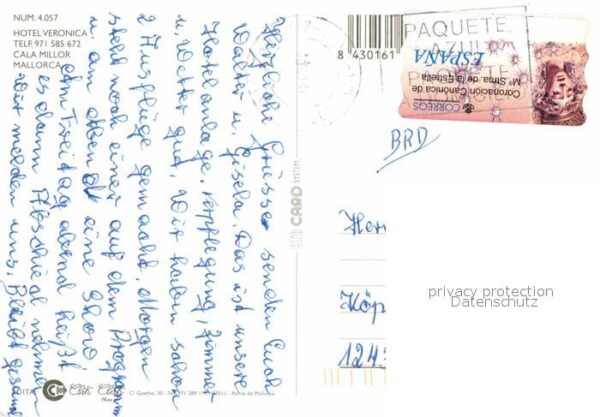 NUM. 4.057
HOTEL VERONICA
TELF. 971 585 672
CALA MILLOR
MALLORCA
Herzliche Grüsse senden Euch
Walter u. Gisela. Das ist unsere
Hotelanlage, Verpflegung, Zimmer
u. Wetter gut, Wir haben schon
2 Ausflüge gemacht, Morgen
steht noch einer auf dem Programm
u am Abend eine Show
Am Freitag abend heißt
es dann Abschied nehmen
Wir melden uns, Bleibt gesund
8 430161
PAQUETE
AZUL
PAQUETE
CORREOS
Coronación Canónica de
Mª Stma. de la Estrella
ESPAÑA
BRD
CARD
SYSTEM
Her
Köp
124
privacy protection
Datenschutz
EDITA:
Clik Clak
C/ Goethe, 30 - Tel.
Palma de Mallorca